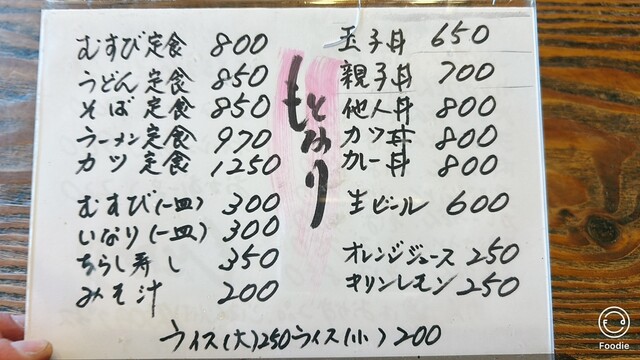 むすび定食 800
うどん定食 850
そば定食 850
ラーメン定食 970
カツ定食 1250
むすび(一皿) 300
いなり(一皿) 300
ちらし寿し 350
みそ汁 200
もとなり
玉子丼 650
親子丼 700
他人丼 800
カツ丼 800
カレー丼 800
生ビール 600
オレンジジュース 250
キリンレモン 250
ライス(大)250 ライス(小)200
Foodie